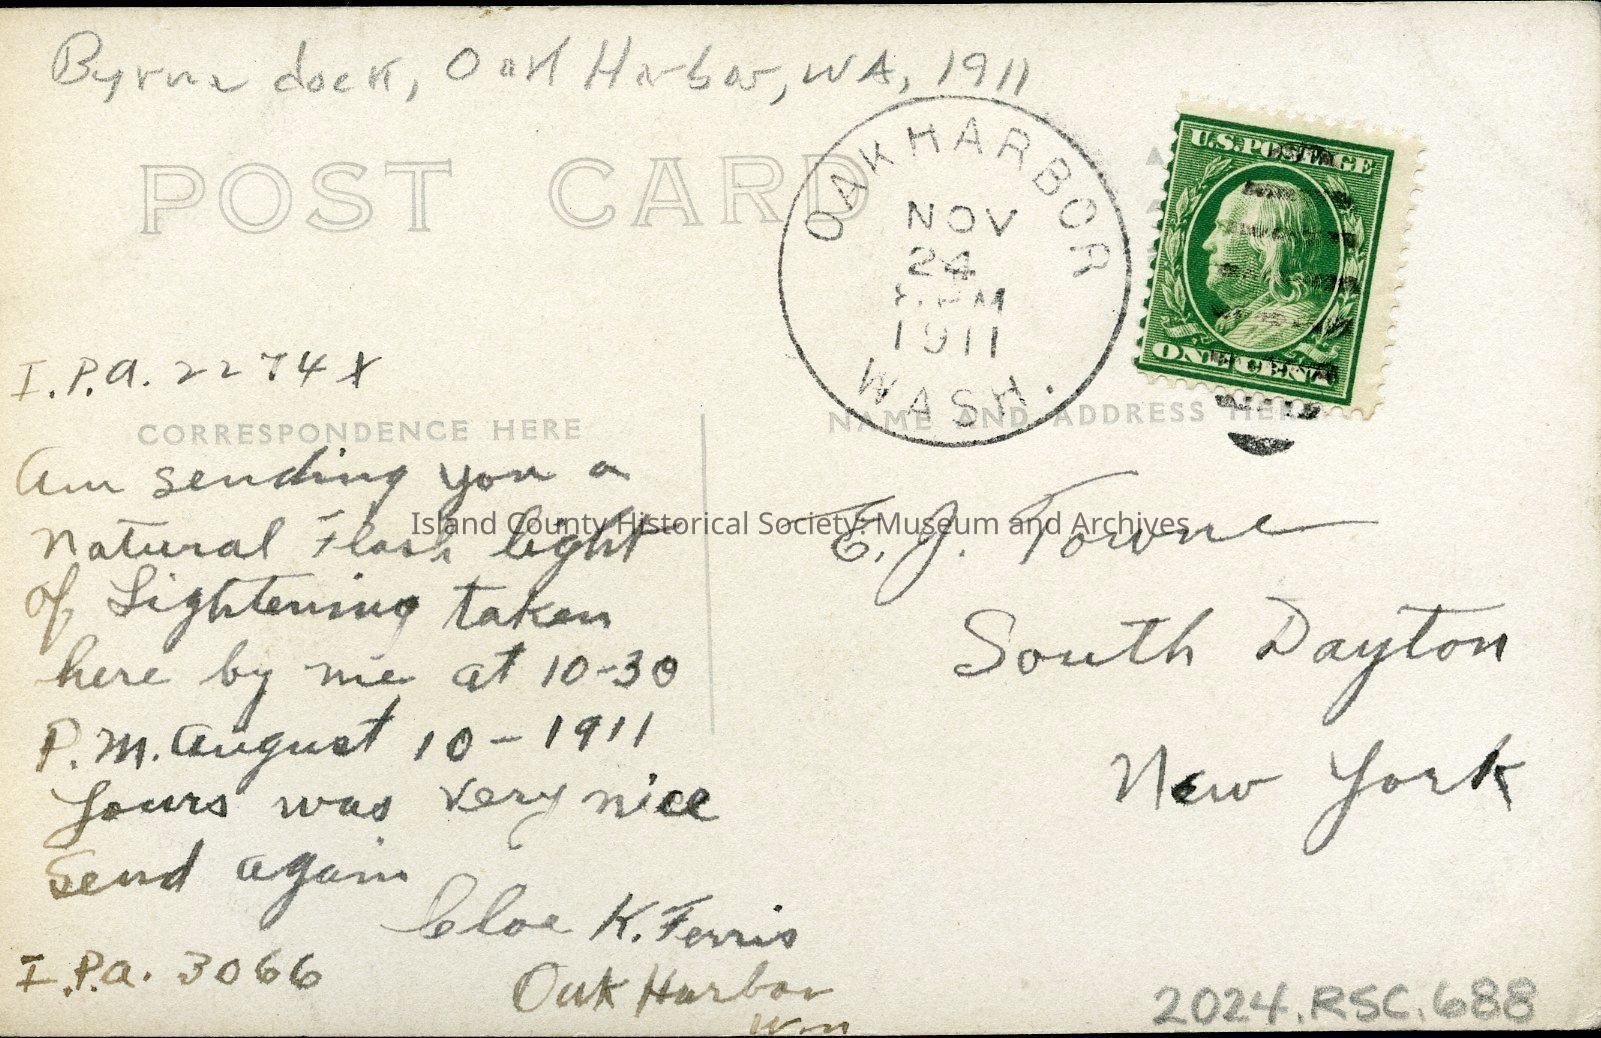 Byrne dock, Oak Harbor, WA, 1911
POST CARD
OAK HARBOR
NOV
24
PM
1911
WASH.
U.S. POSTAGE
ONE CENT
I.P.A. 2274X
CORRESPONDENCE HERE
NAME AND ADDRESS HERE
Am sending you a
Natural Flash light
of Lightening taken
here by me at 10-30
P.M. August 10-1911
Yours was very nice
Send again
Cloe K. Ferris
I.P.A. 3066
Oak Harbor
Wn
E. J. Towne
South Dayton
New York
Island County Historical Society: Museum and Archives
2024.RSC.688